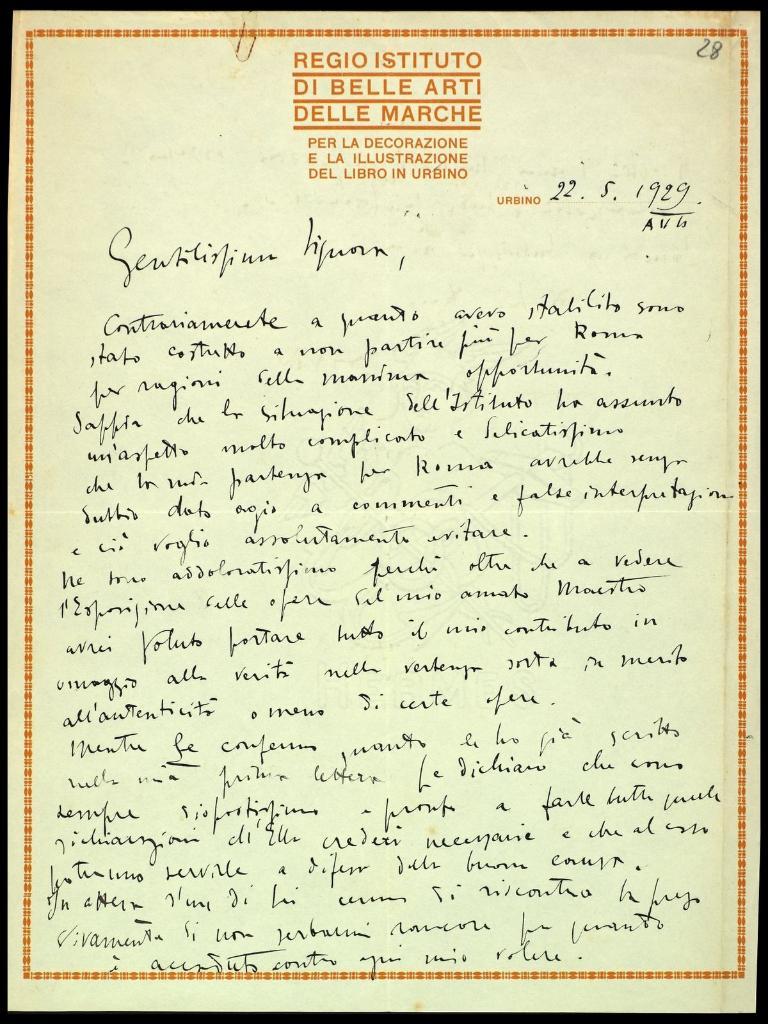 28
REGIO ISTITUTO
DI BELLE ARTI
DELLE MARCHE
PER LA DECORAZIONE
E LA ILLUSTRAZIONE
DEL LIBRO IN URBINO
URBINO 22. 5. 1929.
A VII
Gentilissima Signora,
Contrariamente a quanto avevo stabilito sono
stato costretto a non partire più per Roma
per ragioni della massima opportunità.
Sappia che la situazione dell'Istituto ha assunto
un'aspetto molto complicato e delicatissimo
che la mia partenza per Roma avrebbe senza
dubbio dato agio a commenti e false interpretazioni
e ciò voglio assolutamente evitare.
Ne sono addoloratissimo perché oltre che a vedere
l'Esposizione delle opere del mio amato Maestro
avrei voluto portare tutto il mio contributo in
omaggio alla verità nella vertenza sorta in merito
all'autenticità o meno di certe opere.
Mentre Le confermo quanto le ho già scritto
nella mia prima lettera Le dichiaro che sono
sempre dispostissimo e pronto a farle tutte quelle
dichiarazioni ch'Ella crederà necessarie e che al caso
potranno servirle a difesa della buona causa.
In attesa d'un di Lei cenno di riscontro La prego
vivamente di non serbarmi rancore per quanto
è accaduto contro ogni mio volere.